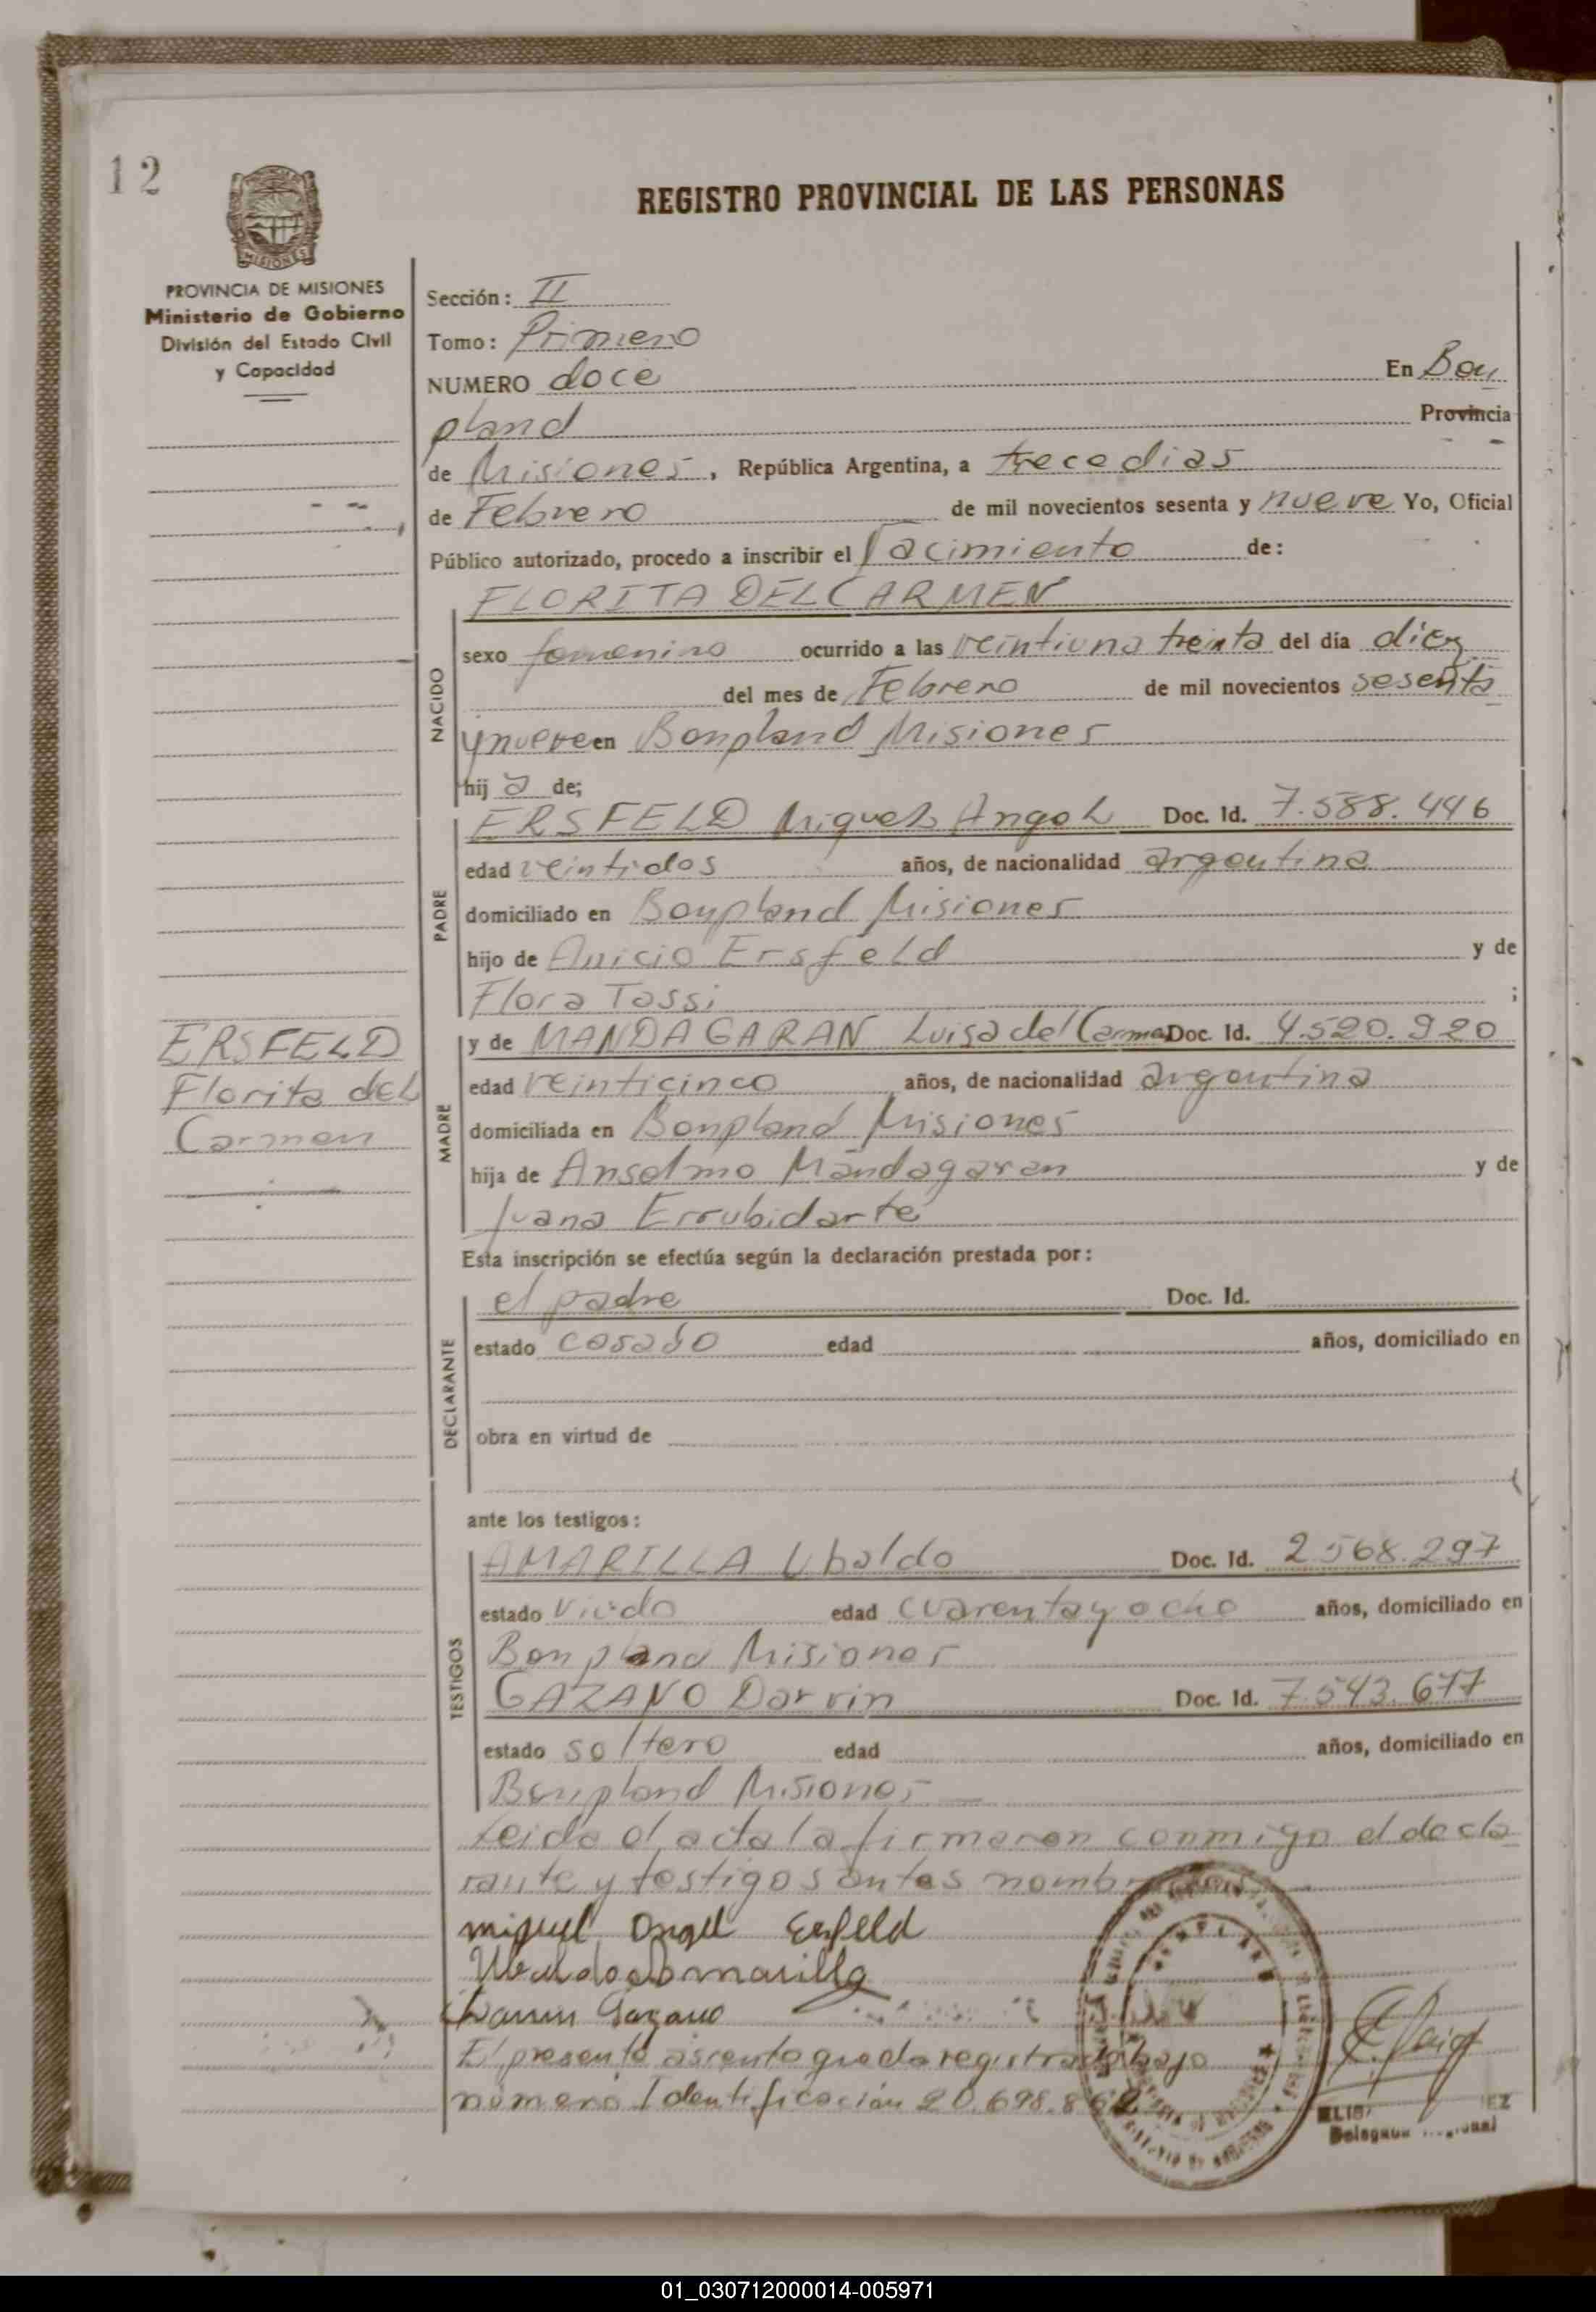 12
MISIONES
REGISTRO PROVINCIAL DE LAS PERSONAS
PROVINCIA DE MISIONES
Ministerio de Gobierno
División del Estado Civil
y Capacidad
Sección: II
Tomo: Primero
NUMERO doce En Bon
pland Provincia
de Misiones, República Argentina, a trece dias
de Febrero de mil novecientos sesenta y nueve Yo, Oficial
Público autorizado, procedo a inscribir el nacimiento de:
FLORITA DEL CARMEN
NACIDO
sexo femenino ocurrido a las veintiuna treinta del día diez
del mes de Febrero de mil novecientos sesenta
y nueve en Bonpland Misiones
hij a de;
PADRE
ERSFELD Miguel Angel Doc. Id. 7.588.446
edad veintidos años, de nacionalidad argentina
domiciliado en Bonpland Misiones
hijo de Anicio Ersfeld y de
Flora Tassi ;
ERSFELD
Florita del
Carmen
MADRE
y de MANDAGARAN Luisa del Carmen Doc. Id. 4.520.920
edad veinticinco años, de nacionalidad argentina
domiciliada en Bonpland Misiones
hija de Anselmo Mandagaran y de
Juana Errubidarte
Esta inscripción se efectúa según la declaración prestada por:
DECLARANTE
el padre Doc. Id.
estado casado edad años, domiciliado en
obra en virtud de
ante los testigos:
TESTIGOS
AMARILLA Ubaldo Doc. Id. 2.568.297
estado viudo edad cuarenta y ocho años, domiciliado en
Bonpland Misiones
GAZANO Darvin Doc. Id. 7.543.677
estado soltero edad años, domiciliado en
Bonpland Misiones
Leida el acta la firmaron conmigo el decla
rante y testigos antes
miguel Angel Ersfeld
Ubaldo Amarilla
Darvin Gazano
El presente asiento queda registrado bajo
número Identificación 20.698.862
01_030712000014-005971